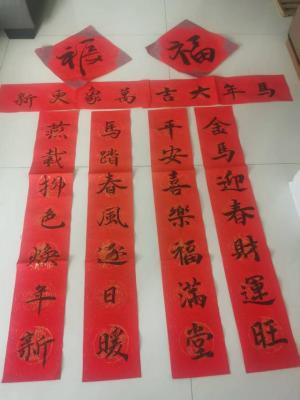 福
福
馬年大吉萬象更新
金馬迎春財運旺
平安喜樂福滿堂
馬踏春風逐日暖
燕裁柳色煥年新